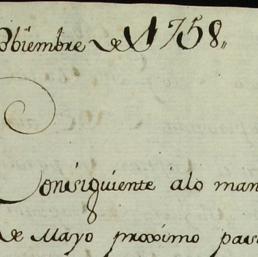 8biembre de 1758,,
Consiguiente alo man
de Mayo proximo pas